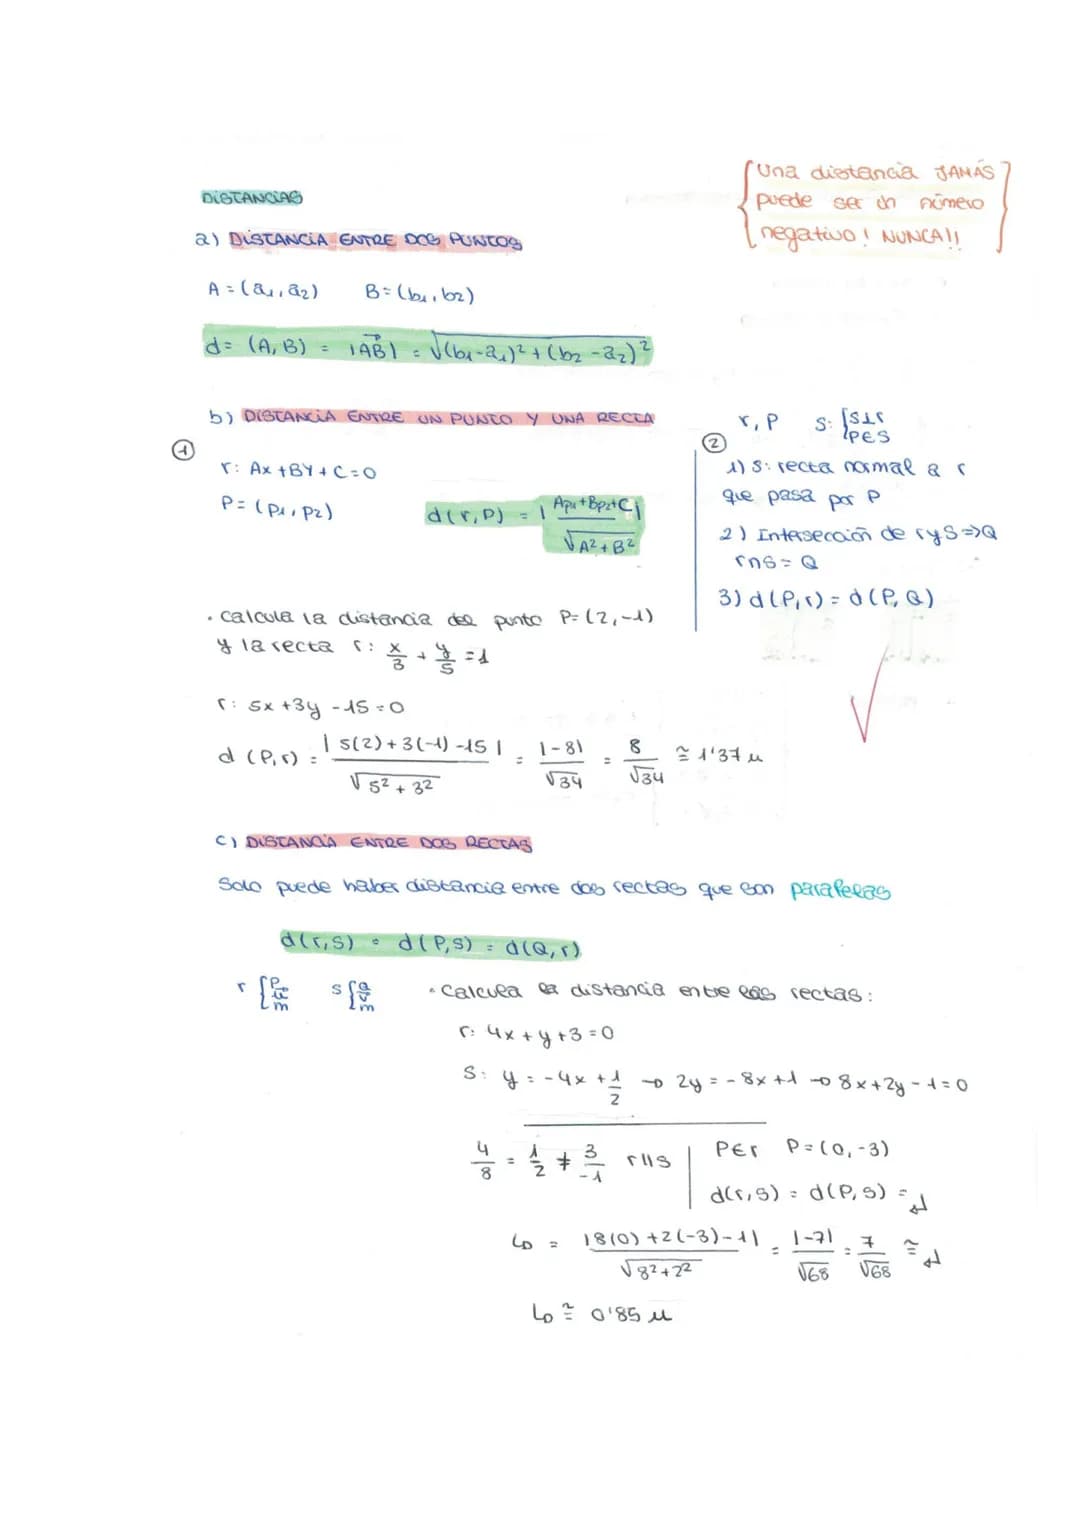 DISTANCIAS
{Una distancia JAMÁS
puede ser un número
negativo! NUNCA!!}
a) DISTANCIA ENTRE DOS PUNTOS
A = (a₁, a₂) B = (b₁, b₂)
d = (A, B) = |AB⃗| = √(b₁-a₁)² + (b₂-a₂)²
b) DISTANCIA ENTRE UN PUNTO Y UNA RECTA
①
r: Ax + BY + C = 0
P = (p₁, p₂)
d(r, P) = |Ap₁ + Bp₂ + C| / √A² + B²
②
r, P s: {s⊥r
P∈s
1) s: recta normal a r
que pasa por P
2) Intersección de r y s => Q
r∩s = Q
3) d(P, r) = d(P, Q)
· Calcula la distancia del punto P = (2, -1)
y la recta r: x/3 + y/5 = 1
r: 5x + 3y - 15 = 0
d (P, r) = |5(2) + 3(-1) - 15| / √5² + 3² = |-8| / √34 = 8 / √34 ≅ 1'37 u
c) DISTANCIA ENTRE DOS RECTAS
Solo puede haber distancia entre dos rectas que son paralelas
d(r, s) = d(P, s) = d(Q, r)
r {P u⃗ m s {Q v⃗ m
· Calcula la distancia entre las rectas:
r: 4x + y + 3 = 0
s: y = -4x + 1/2 → 2y = -8x + 1 → 8x + 2y - 1 = 0
4/8 = 1/2 ≠ 3/-1 r∥s | P∈r P = (0, -3)
d(r, s) = d(P, s) = ↵
↳ = |8(0) + 2(-3) - 1| / √8² + 2² = |-7| / √68 = 7 / √68 ≅ ↵
↳ ≅ 0'85 u